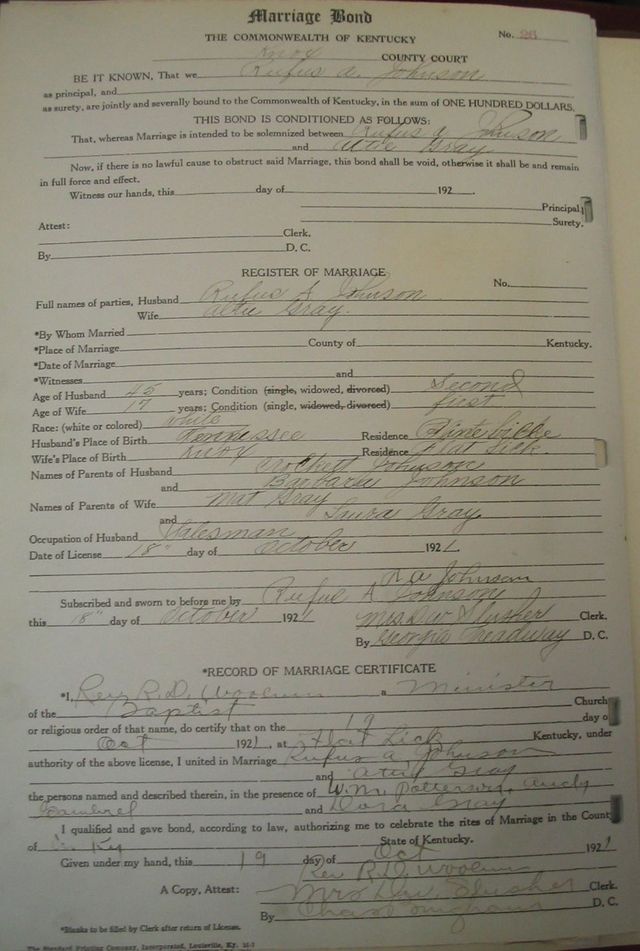 Marriage Bond
No. 26
THE COMMONWEALTH OF KENTUCKY
Knox COUNTY COURT
BE IT KNOWN, That we Rufus A. Johnson
as principal, and
as surety, are jointly and severally bound to the Commonwealth of Kentucky, in the sum of ONE HUNDRED DOLLARS.
THIS BOND IS CONDITIONED AS FOLLOWS:
That, whereas Marriage is intended to be solemnized between Rufus A Johnson
and Gray
Now, if there is no lawful cause to obstruct said Marriage, this bond shall be void, otherwise it shall be and remain
in full force and effect.
Witness our hands, this day of 192 .
Principal,
Surety.
Attest:
Clerk.
By D. C.
REGISTER OF MARRIAGE
No.
Full names of parties, Husband Rufus A Johnson
Wife Gray.
*By Whom Married
*Place of Marriage County of Kentucky.
*Date of Marriage
*Witnesses and
Age of Husband 45 years; Condition (single, widowed, divorced) Second
Age of Wife 17 years; Condition (single, widowed, divorced) first
Race: (white or colored) white
Husband's Place of Birth Tennessee Residence
Wife's Place of Birth Knox Residence Flat Lick
Names of Parents of Husband Crockett Johnson
and Barbara Johnson
Names of Parents of Wife Mat Gray
and Laura Gray
Occupation of Husband Salesman
Date of License 18" day of October 1921.
R A Johnson
Subscribed and sworn to before me by Rufus A Johnson
this 18" day of October 1921 Mrs. D W Slusher Clerk.
By Georgia Treadway D. C.
*RECORD OF MARRIAGE CERTIFICATE
*I, Rev R. D. Woolum a Minister
of the Baptist Church
or religious order of that name, do certify that on the 19 day o
Oct 1921, at Flat Lick Kentucky, under
authority of the above license, I united in Marriage Rufus A Johnson
and Gray
the persons named and described therein, in the presence of W. M. Patterson, Andy
and Dora Gray
I qualified and gave bond, according to law, authorizing me to celebrate the rites of Marriage in the Count
of Ky State of Kentucky.
Given under my hand, this 19 day of Oct 1921
Rev R. D. Woolum
A Copy, Attest: Mrs D.W. Slusher Clerk.
By D. C.
*Blanks to be filled by Clerk after return of License.
The Standard Printing Company, Incorporated, Louisville, Ky.